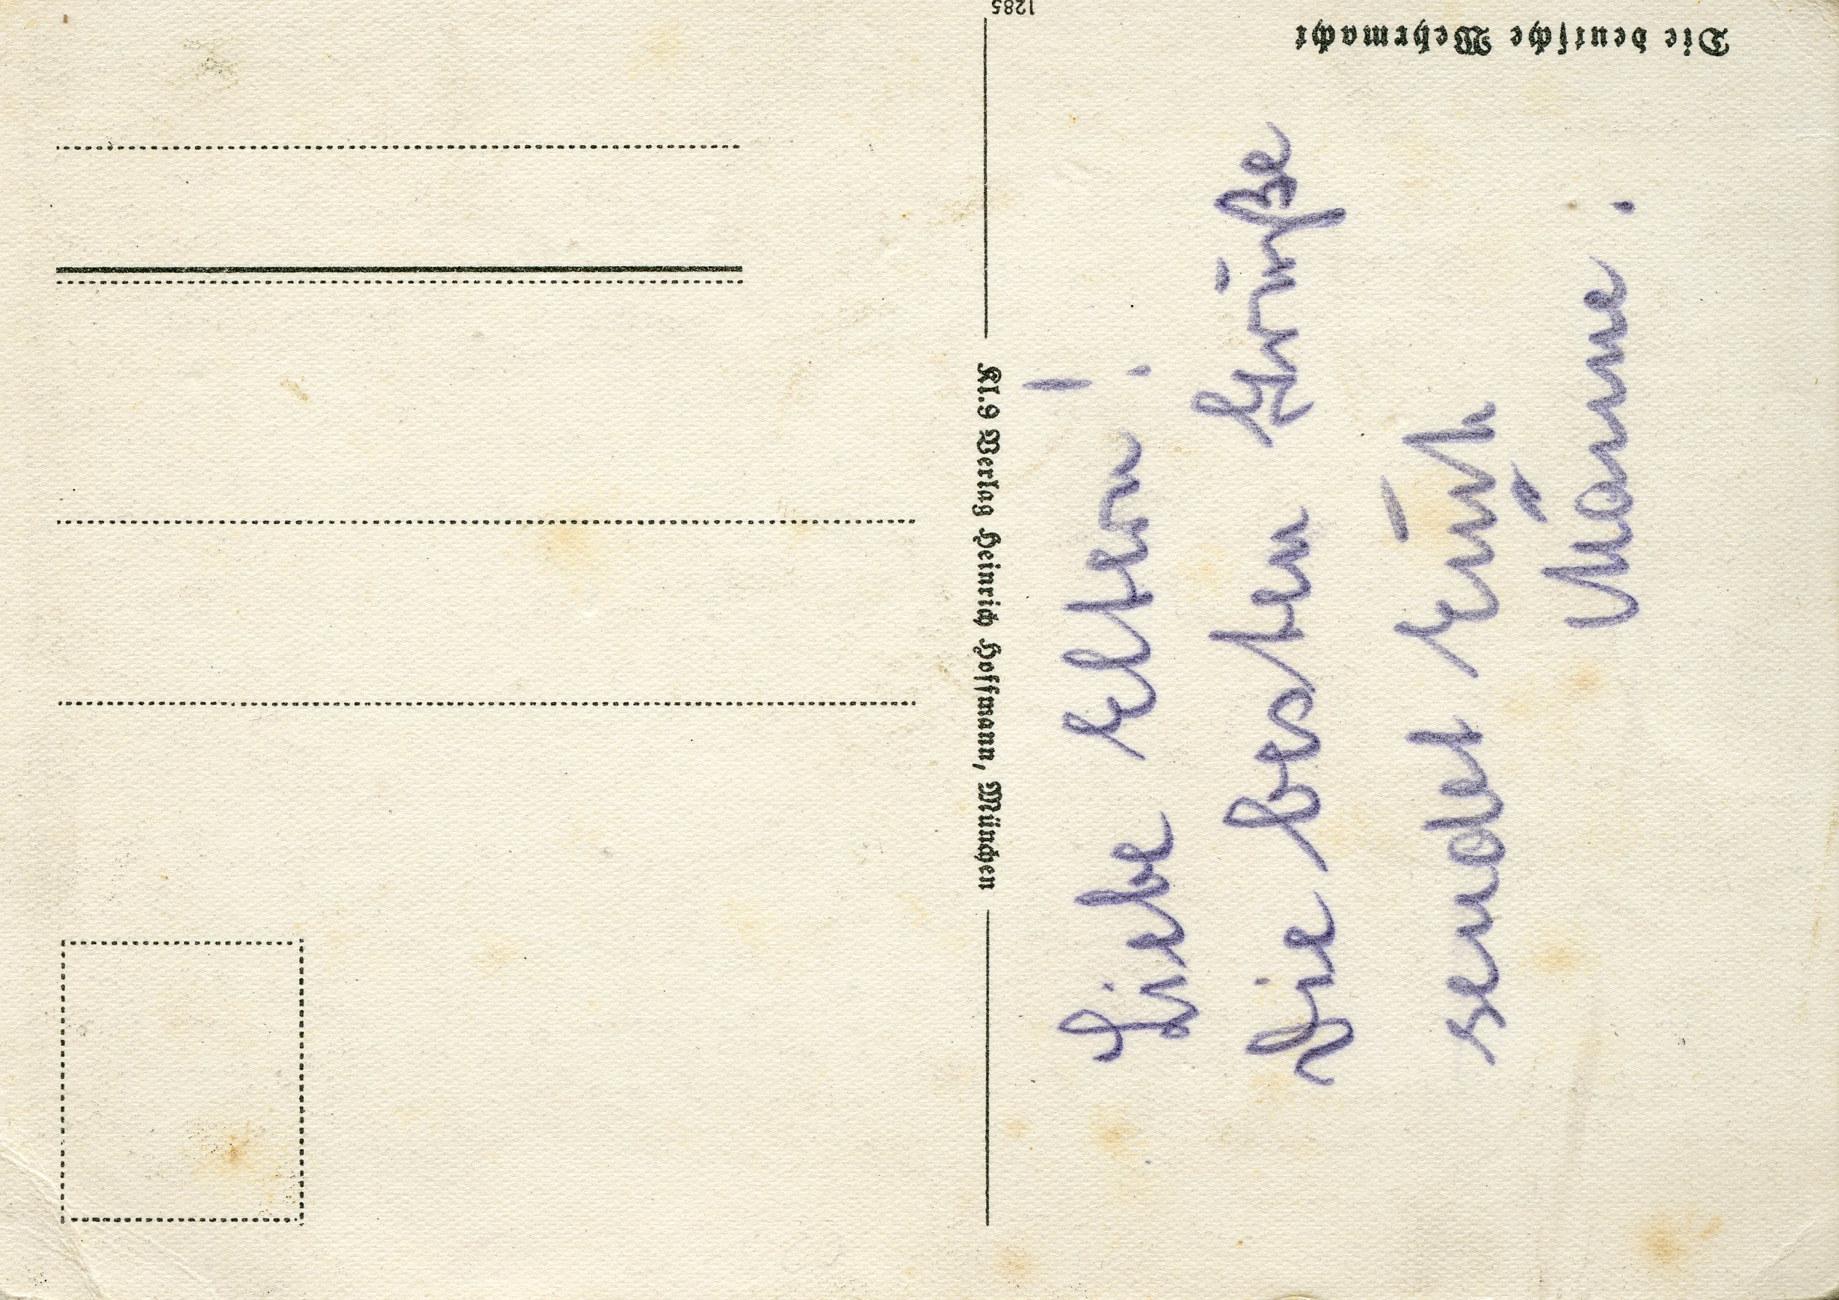 Die deutsche Wehrmacht
Liebe Eltern!
Die besten Grüße
sendet Euch
Männe.
Kl.9 Verlag Heinrich Hoffmann, München
1285